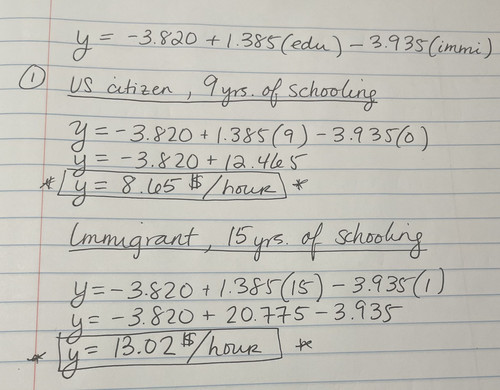 y = -3.820 + 1.385(edu) - 3.935(immi)
① US citizen, 9 yrs. of schooling
y = -3.820 + 1.385(9) - 3.935(0)
y = -3.820 + 12.465
* y = 8.65 $/hour *
Immigrant, 15 yrs. of schooling
y = -3.820 + 1.385(15) - 3.935(1)
y = -3.820 + 20.775 - 3.935
* y = 13.02 $/hour *